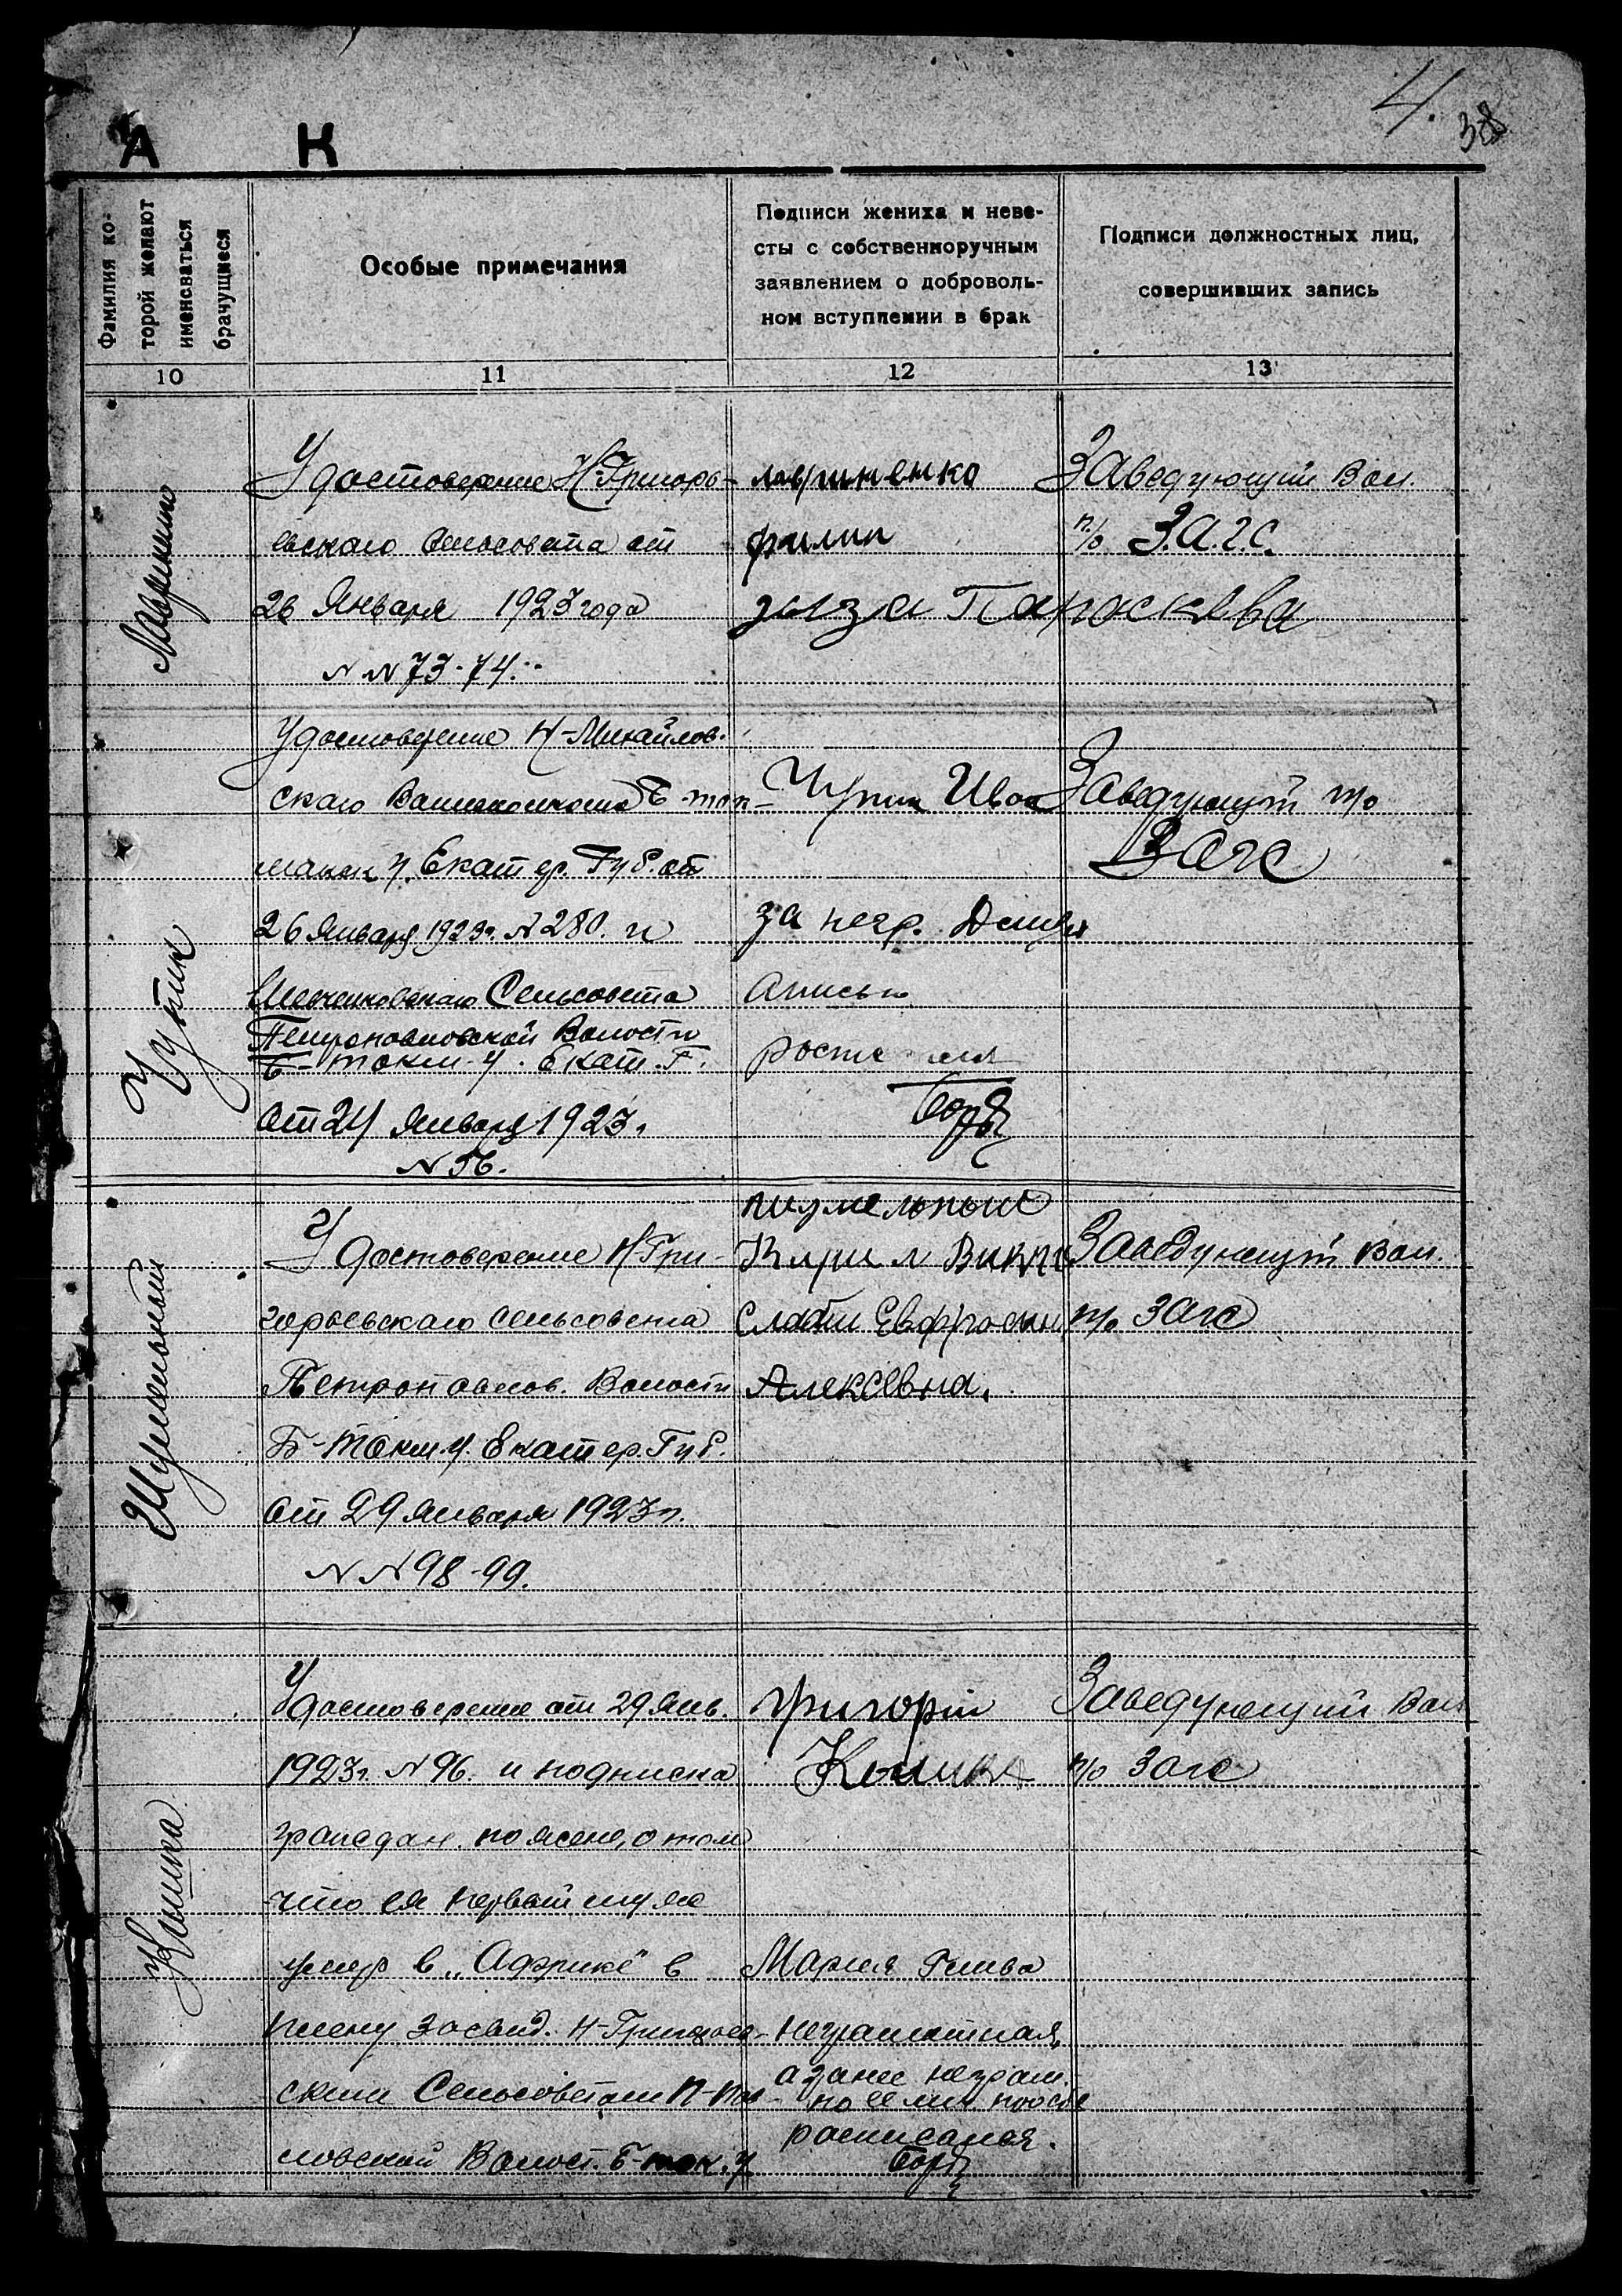 4.
38
А К
Фамилия ко-
торой желают
именоваться
брачущиеся
Особые примечания
Подписи жениха и неве-
сты с собственноручным
заявлением о доброволь-
ном вступлении в брак
Подписи должностных лиц,
совершивших запись
10
11
12
13
Удостоверение Н-Григорь-
евскаго Сельсовета от
26 Января 1923 года
N N 73-74.
филип
Параскева
Заведующий Вол.
п/о З.А.Г.С.
Чупик
Удостоверение Н-Михайлов-
скаго Волисполкома Б-ток-
макск у. Екатер. Губ. от
26 Января 1923г. N 280. и
Шевченковскаго Сельсовета
Петропавловской Волости
Б-токм. у. Екат. Г.
от 24 Января 1923г.
N 56.
Чупик Иван
за негр.
Заведующий п/о
Загс
Шумельный
Удостоверение Н-Гри-
горьевскаго сельсовета
Петропавлов. Волости
Б-Токм. у. Екатер. Губ.
от 29 Января 1923г.
N N 98-99.
Кирил
Евфросин
Алексевна.
Заведующий Вол.
п/о Загс
Кошка
Удостоверение от 29 Янв.
1923г. N 96. и подписка
граждан. по жене, о том
что ея первый муж
умер в „Африке" в
плену засвид. Н-Григорьев-
ским Сельсоветом П-Пав-
ловской Волост. Б-ток. у.
Григорій
Кошка
Мария
неграмотная,
а за нее неграм.
по ее лич. прось
расписался.
Заведующий Вол
п/о Загс